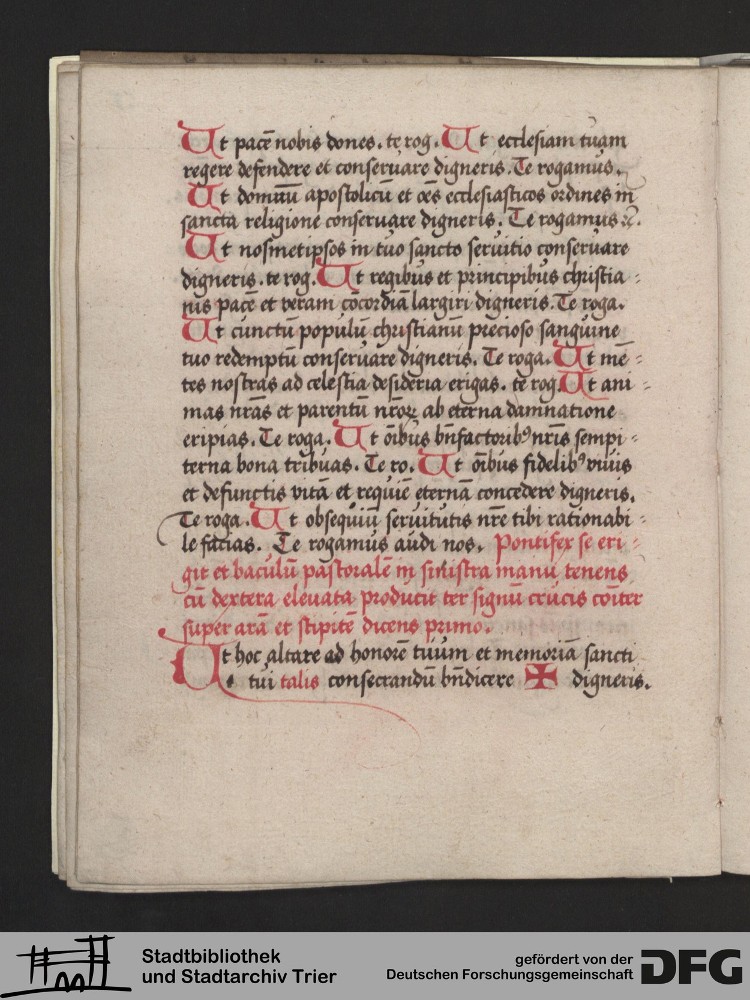 Ut pacē nobis dones. te rog. Ut ecclesiam tuam
regere defendere et conseruare digneris. Te rogamus.
Ut domnū apostolicū et oēs ecclesiasticos ordines in
sancta religione conseruare digneris. Te rogamus
Ut nosmetipsos in tuo sancto seruitio conseruare
digneris. te rog. Ut regibus et principibus christia-
nis pacē et veram cōcordiā largiri digneris. Te roga.
Ut cunctū populū christianū precioso sanguine
tuo redemptū conseruare digneris. Te roga. Ut mē-
tes nostras ad celestia desideria erigas. te rog. Ut ani-
mas nrās et parentū nrōꝝ ab eterna damnatione
eripias. Te roga. Ut oībus bn̄factoribꝰ nrīs sempi-
terna bona tribuas. Te ro. Ut oībus fidelibꝰ viuis
et defunctis vitā et requiē eternā concedere digneris.
Te roga. Ut obsequiū seruitutis nrē tibi rationabi-
le facias. Te rogamus audi nos. Pontifex se eri-
git et baculū pastoralē in sinistra manu tenens
cū dextera eleuata producit ter signū crucis cōiter
super arā et stipitē dicens primo.
Ut hoc altare ad honorē tuum et memoriā sancti
tui talis consecrandū bn̄dicere ✠ digneris.
Stadtbibliothek
und Stadtarchiv Trier
gefördert von der
Deutschen Forschungsgemeinschaft
DFG